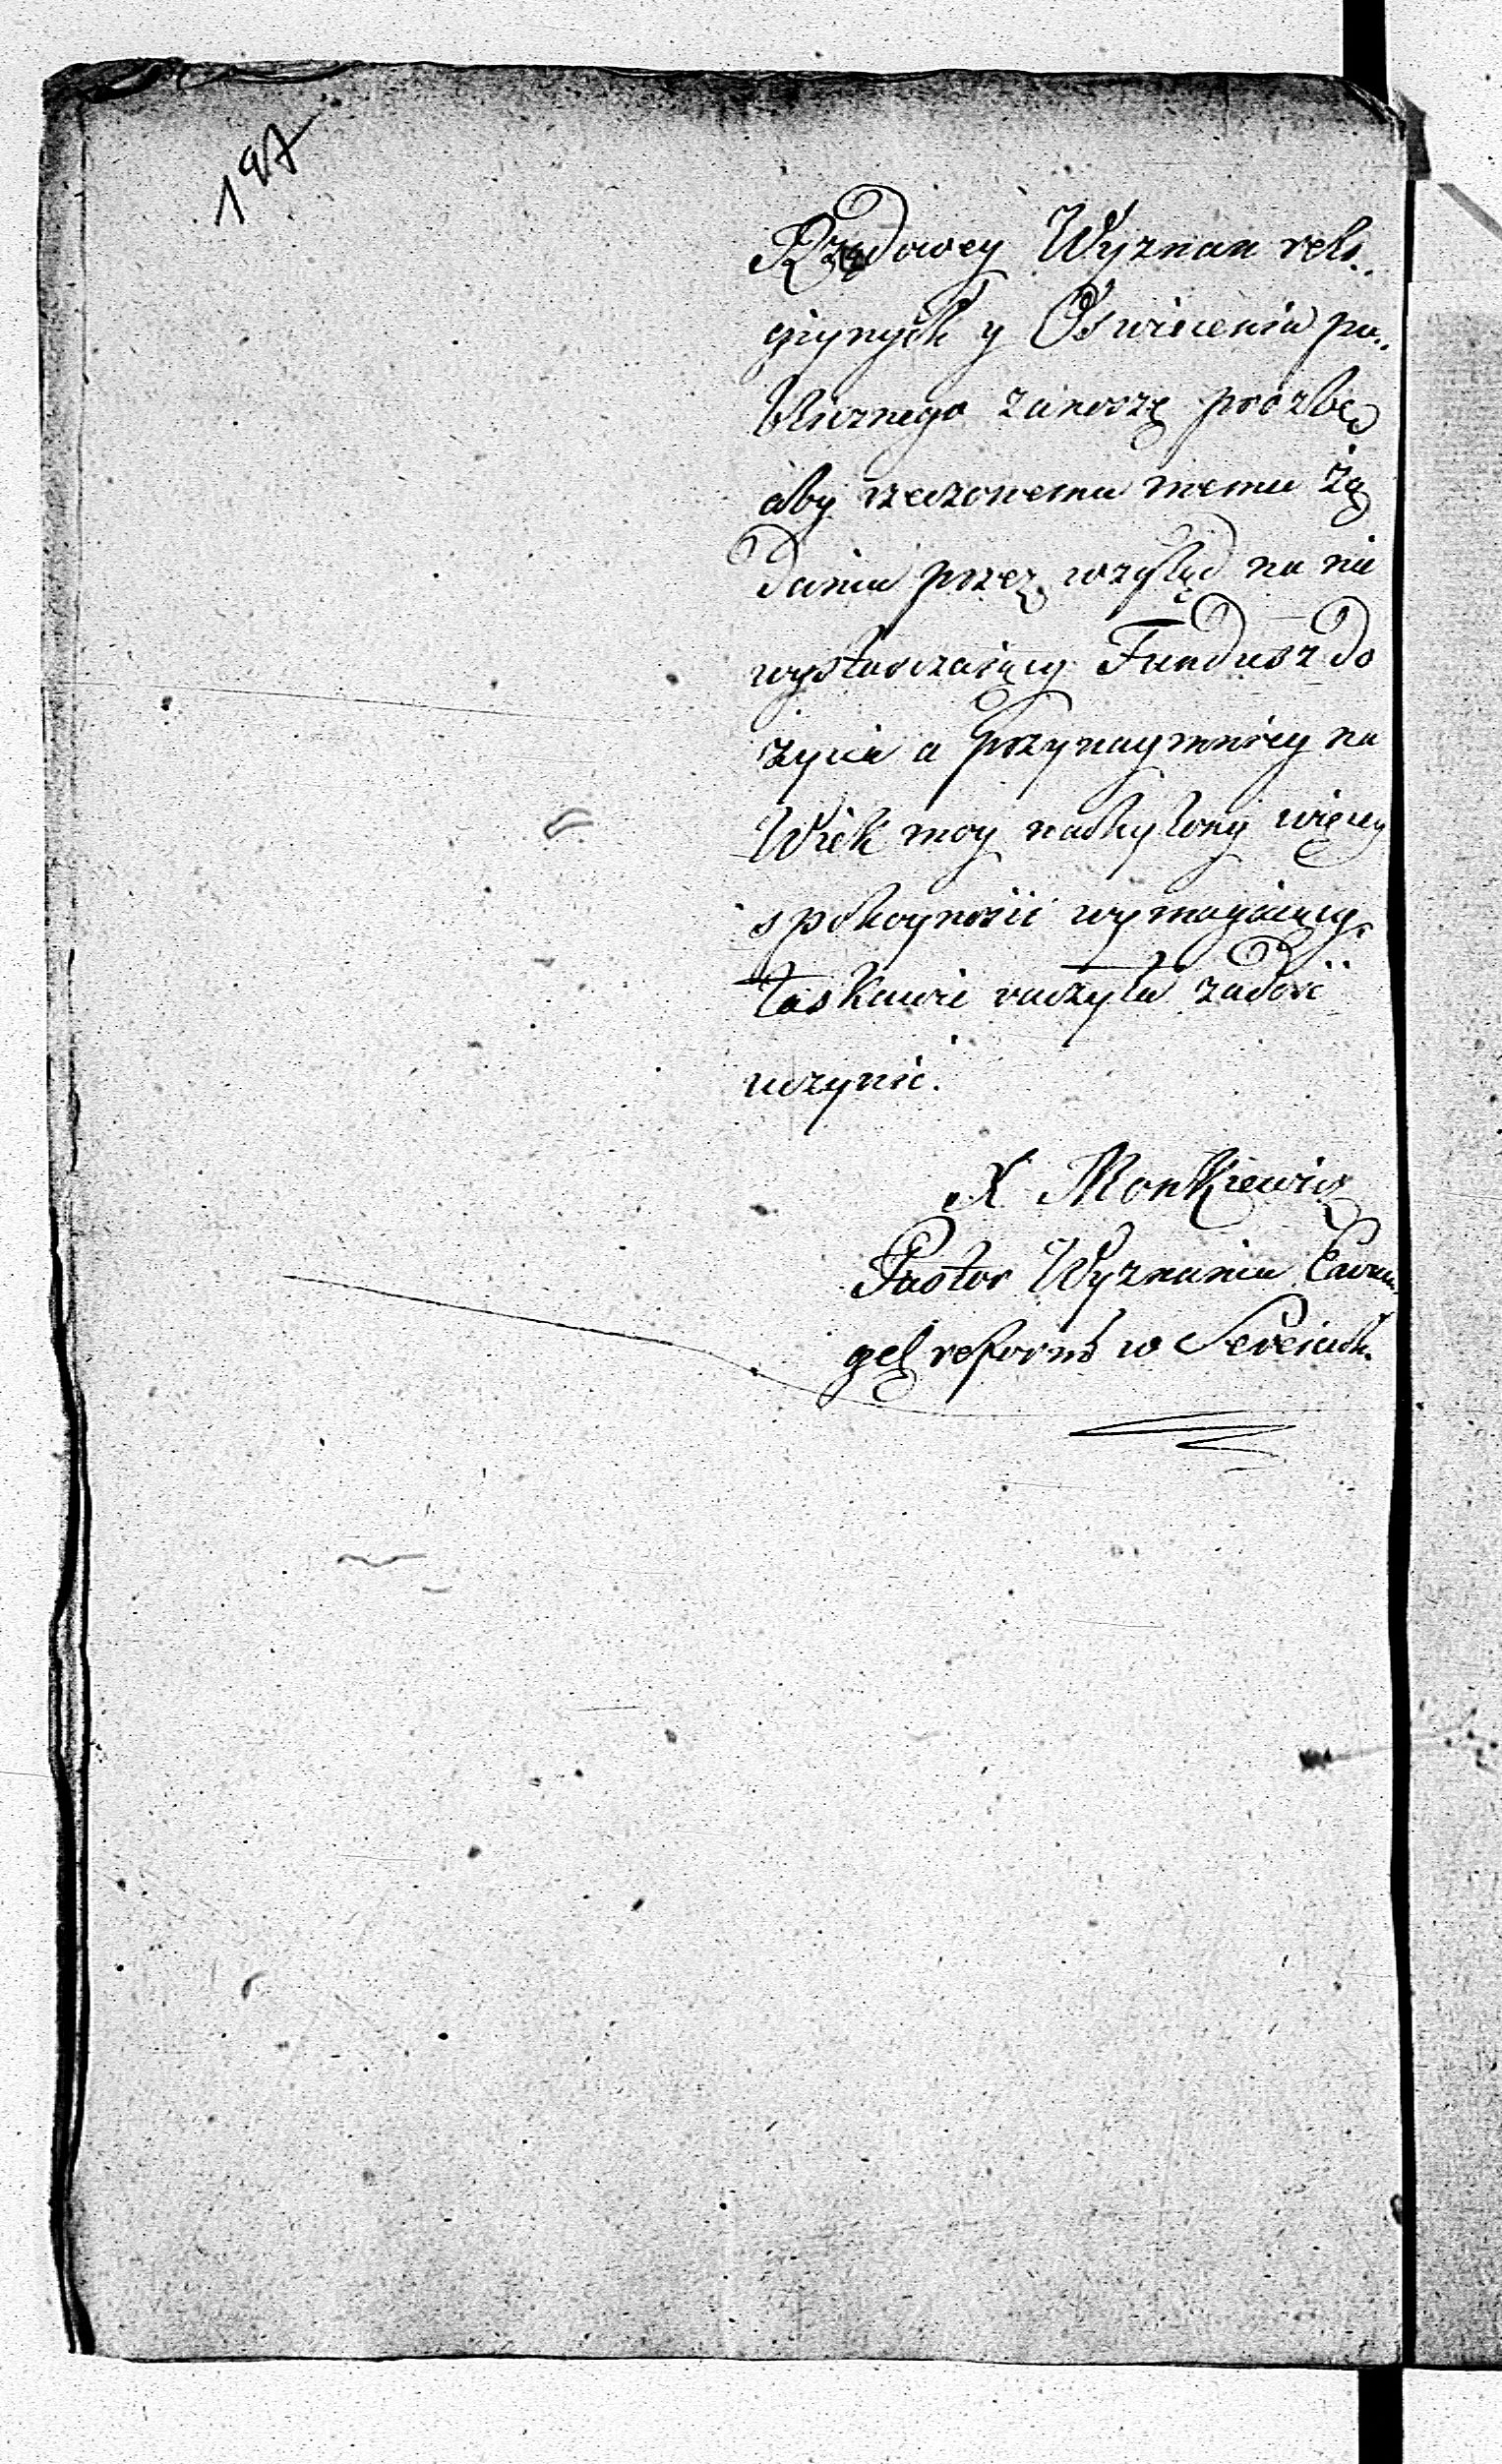 197
Rządowey Wyznan reli..
giynych y Oswiecenia pu..
blicznego zanoszę prozbę
aby rzeczonemu memu żą
daniu przez wzgląd na nie
wystarczaiący Fundusz do
życia a przynaymniey na
Wiek moy nachylony więcey
spokoynosci wymagaiący,
łaskawie raczyła zadość
uczynić.
X Monkiewicz
Pastor Wyznania Ewan
gel reform w Sereiach.